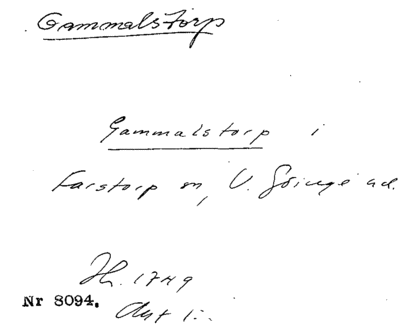 Gammalstorp
Gammalstorp i
Farstorp sn, V. Göinge hd.
Hh. 1749
Nr 8094.